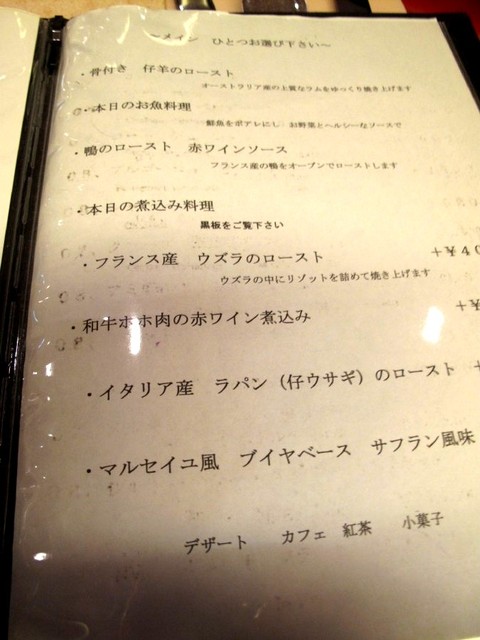 ～メイン　ひとつお選び下さい～
・骨付き　仔羊のロースト
オーストラリア産の上質なラムをゆっくり焼き上げます
・本日のお魚料理
鮮魚をポアレにし　お野菜とヘルシーなソースで
・鴨のロースト　赤ワインソース
フランス産の鴨をオーブンでローストします
・本日の煮込み料理
黒板をご覧下さい
・フランス産　ウズラのロースト　＋￥40
ウズラの中にリゾットを詰めて焼き上げます
・和牛ホホ肉の赤ワイン煮込み　＋￥
・イタリア産　ラパン（仔ウサギ）のロースト　＋
・マルセイユ風　ブイヤベース　サフラン風味
デザート　カフェ　紅茶　小菓子